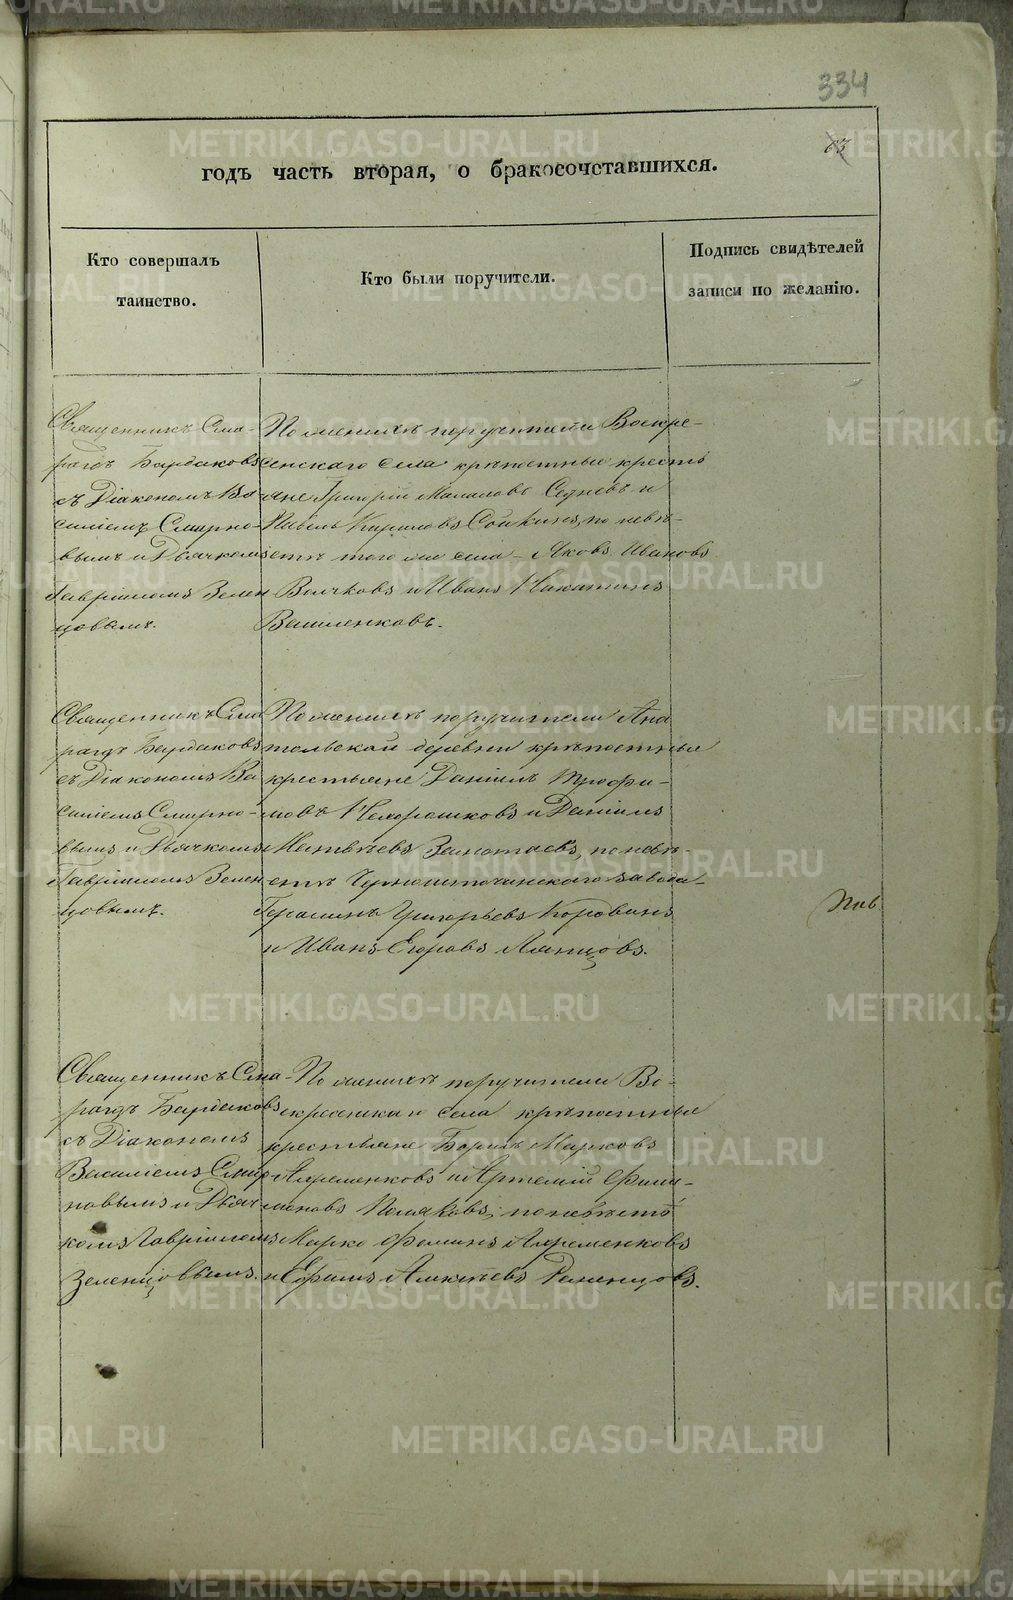 334
63
годъ часть вторая, о бракосочетавшихся.
Кто совершалъ
таинство.
Кто были поручители.
Подпись свидѣтелей
записи по желанію.
Священникъ Сма-
рагдъ Бардаковъ
съ Діакономъ Ва
силіемъ Смирно-
вымъ и Дьячкомъ
Гавріиломъ Зелен
цовымъ.
По женихѣ поручители Воскре-
сенскаго села крѣпостные кресть
яне Григорій Сѣдневъ и
Павелъ Кириловъ Сойкинъ, по невѣ-
стѣ того же села Яковъ Ивановъ
Волчковъ и Иванъ Никитинъ
Василенковъ.
Священникъ Сма
рагдъ Бардаковъ
съ Діакономъ Ва
силіемъ Смирно-
вымъ и Дьячкомъ
Гавріиломъ Зелен
цовымъ.
По женихѣ поручители Ана
тольской деревни крѣпостные
крестьяне Даніилъ Трофи-
мовъ и Даніилъ
Матвѣевъ по невѣ-
стѣ Черноисточинскаго завода
Герасимъ Григорьевъ Коровинъ
и Иванъ Егоровъ
Священникъ Сма-
рагдъ Бардаковъ
съ Діакономъ
Василіемъ Смир
новымъ и Дьяч
комъ Гавріиломъ
Зеленцовымъ.
По женихѣ поручители Во-
скресенскаго села крѣпостные
крестьяне Борисъ Марковъ
Ахременковъ и Артемій Фили-
моновъ Поляковъ, по невѣстѣ
Марко Фоминъ Ахременковъ
и Ефимъ Алексѣевъ